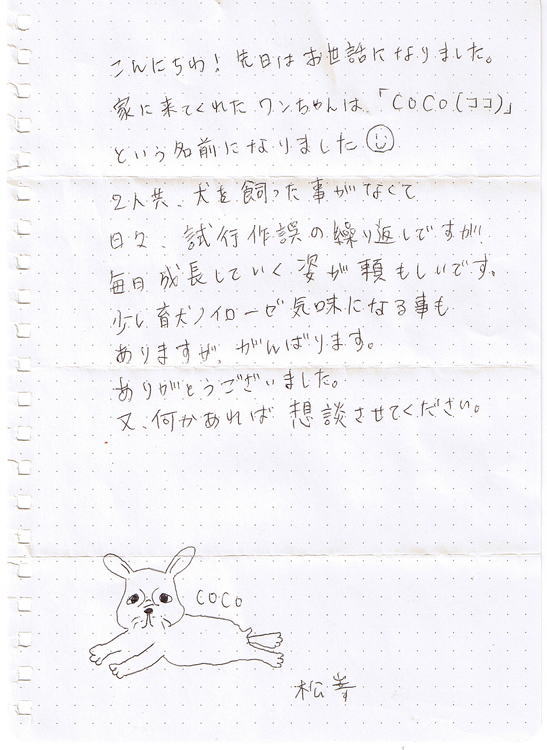 こんにちわ！先日はお世話になりました。
家に来てくれたワンちゃんは、「COCO(ココ)」
という名前になりました☺
2人共、犬を飼った事がなくて
日々、試行作誤の繰り返しですが
毎日成長していく姿が頼もしいです。
少し育犬ノイローゼ気味になる事も
ありますが、がんばります。
ありがとうございました。
又、何かあれば想談させてください。
COCO
松